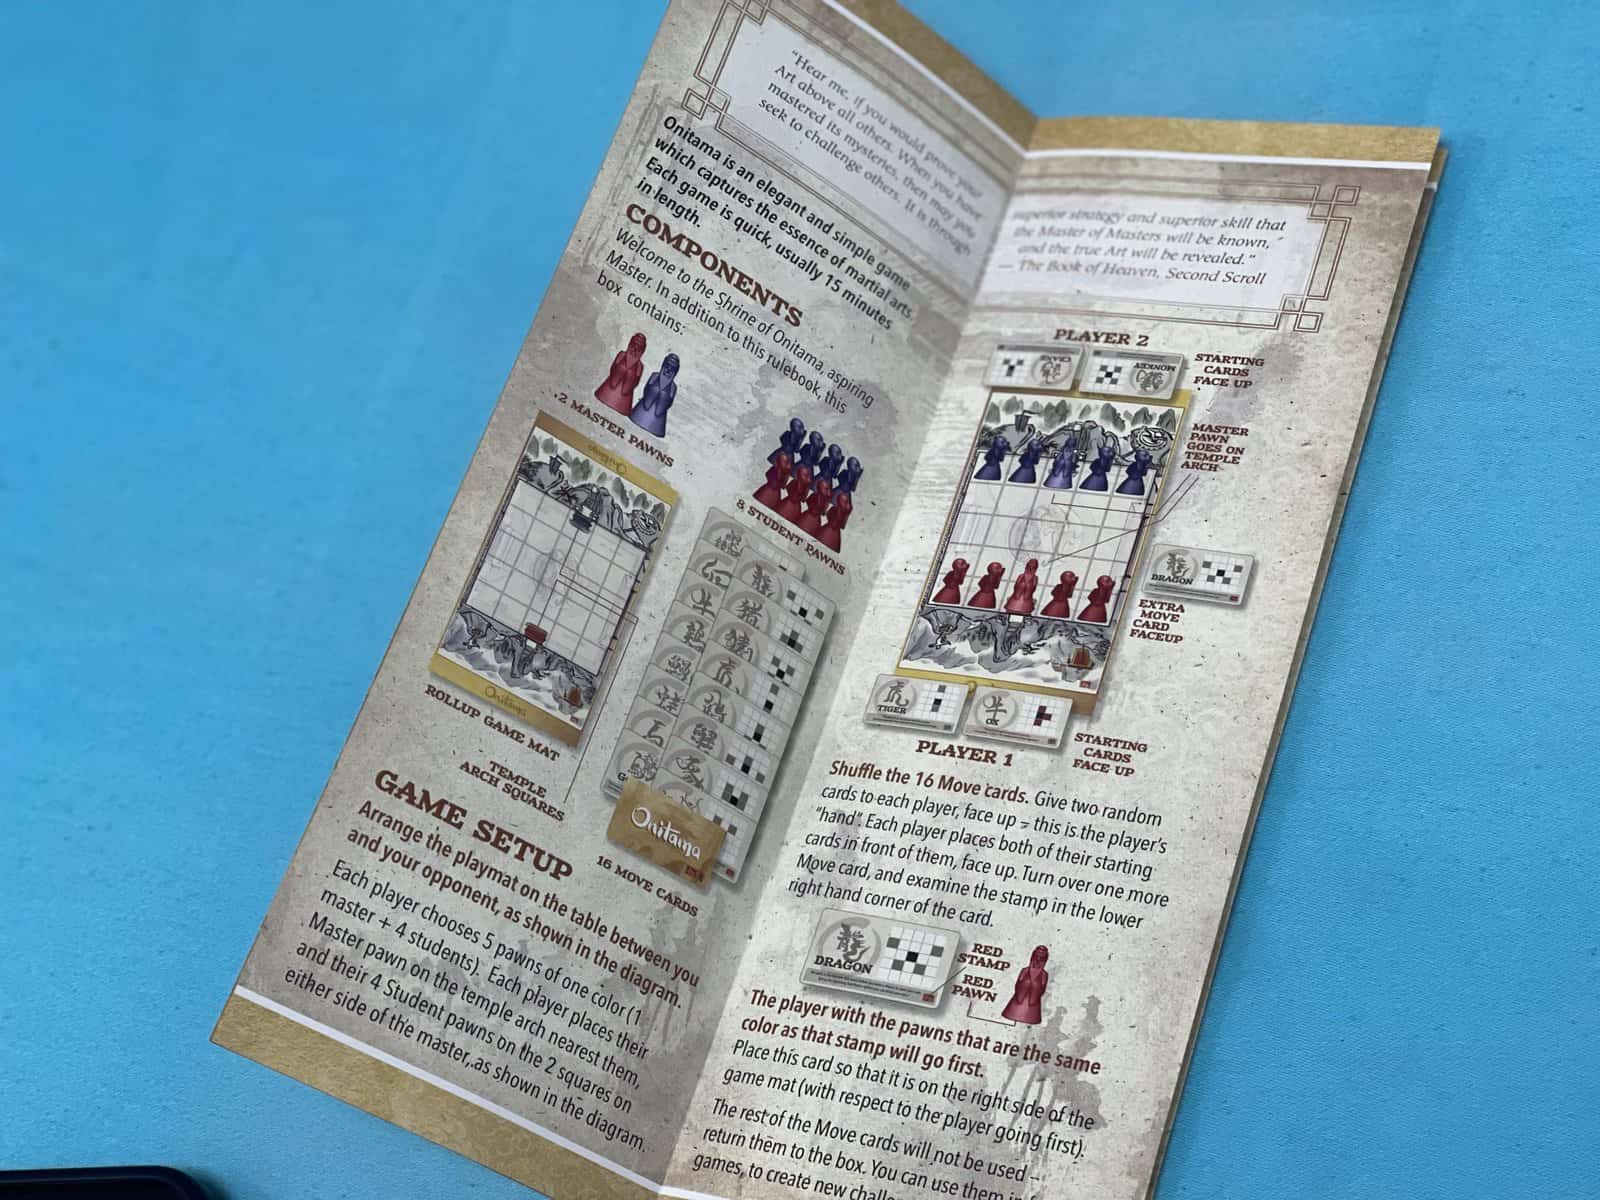 "Hear me, if you would prove your
Art above all others. When you have
mastered its mysteries, then may you
seek to challenge others. It is through
Onitama is an elegant and simple game
which captures the essence of martial arts.
Each game is quick, usually 15 minutes
in length.
COMPONENTS
Welcome to the Shrine of Onitama, aspiring
Master. In addition to this rulebook, this
box contains:
2 MASTER PAWNS
8 STUDENT PAWNS
Onitama
Onitama
ROLLUP GAME MAT
TEMPLE
ARCH SQUARES
Onitama
16 MOVE CARDS
GAME SETUP
Arrange the playmat on the table between you
and your opponent, as shown in the diagram.
Each player chooses 5 pawns of one color (1
master + 4 students). Each player places their
Master pawn on the temple arch nearest them,
and their 4 Student pawns on the 2 squares on
either side of the master, as shown in the diagram.
superior strategy and superior skill that
the Master of Masters will be known,
and the true Art will be revealed."
— The Book of Heaven, Second Scroll
PLAYER 2
CRANE
MONKEY
STARTING
CARDS
FACE UP
MASTER
PAWN
GOES ON
TEMPLE
ARCH
龍
DRAGON
EXTRA
MOVE
CARD
FACEUP
虎
TIGER
牛
OX
PLAYER 1
STARTING
CARDS
FACE UP
Shuffle the 16 Move cards. Give two random
cards to each player, face up – this is the player's
"hand". Each player places both of their starting
cards in front of them, face up. Turn over one more
Move card, and examine the stamp in the lower
right hand corner of the card.
龍
DRAGON
RED
STAMP
RED
PAWN
The player with the pawns that are the same
color as that stamp will go first.
Place this card so that it is on the right side of the
game mat (with respect to the player going first).
The rest of the Move cards will not be used –
return them to the box. You can use them in
games, to create new